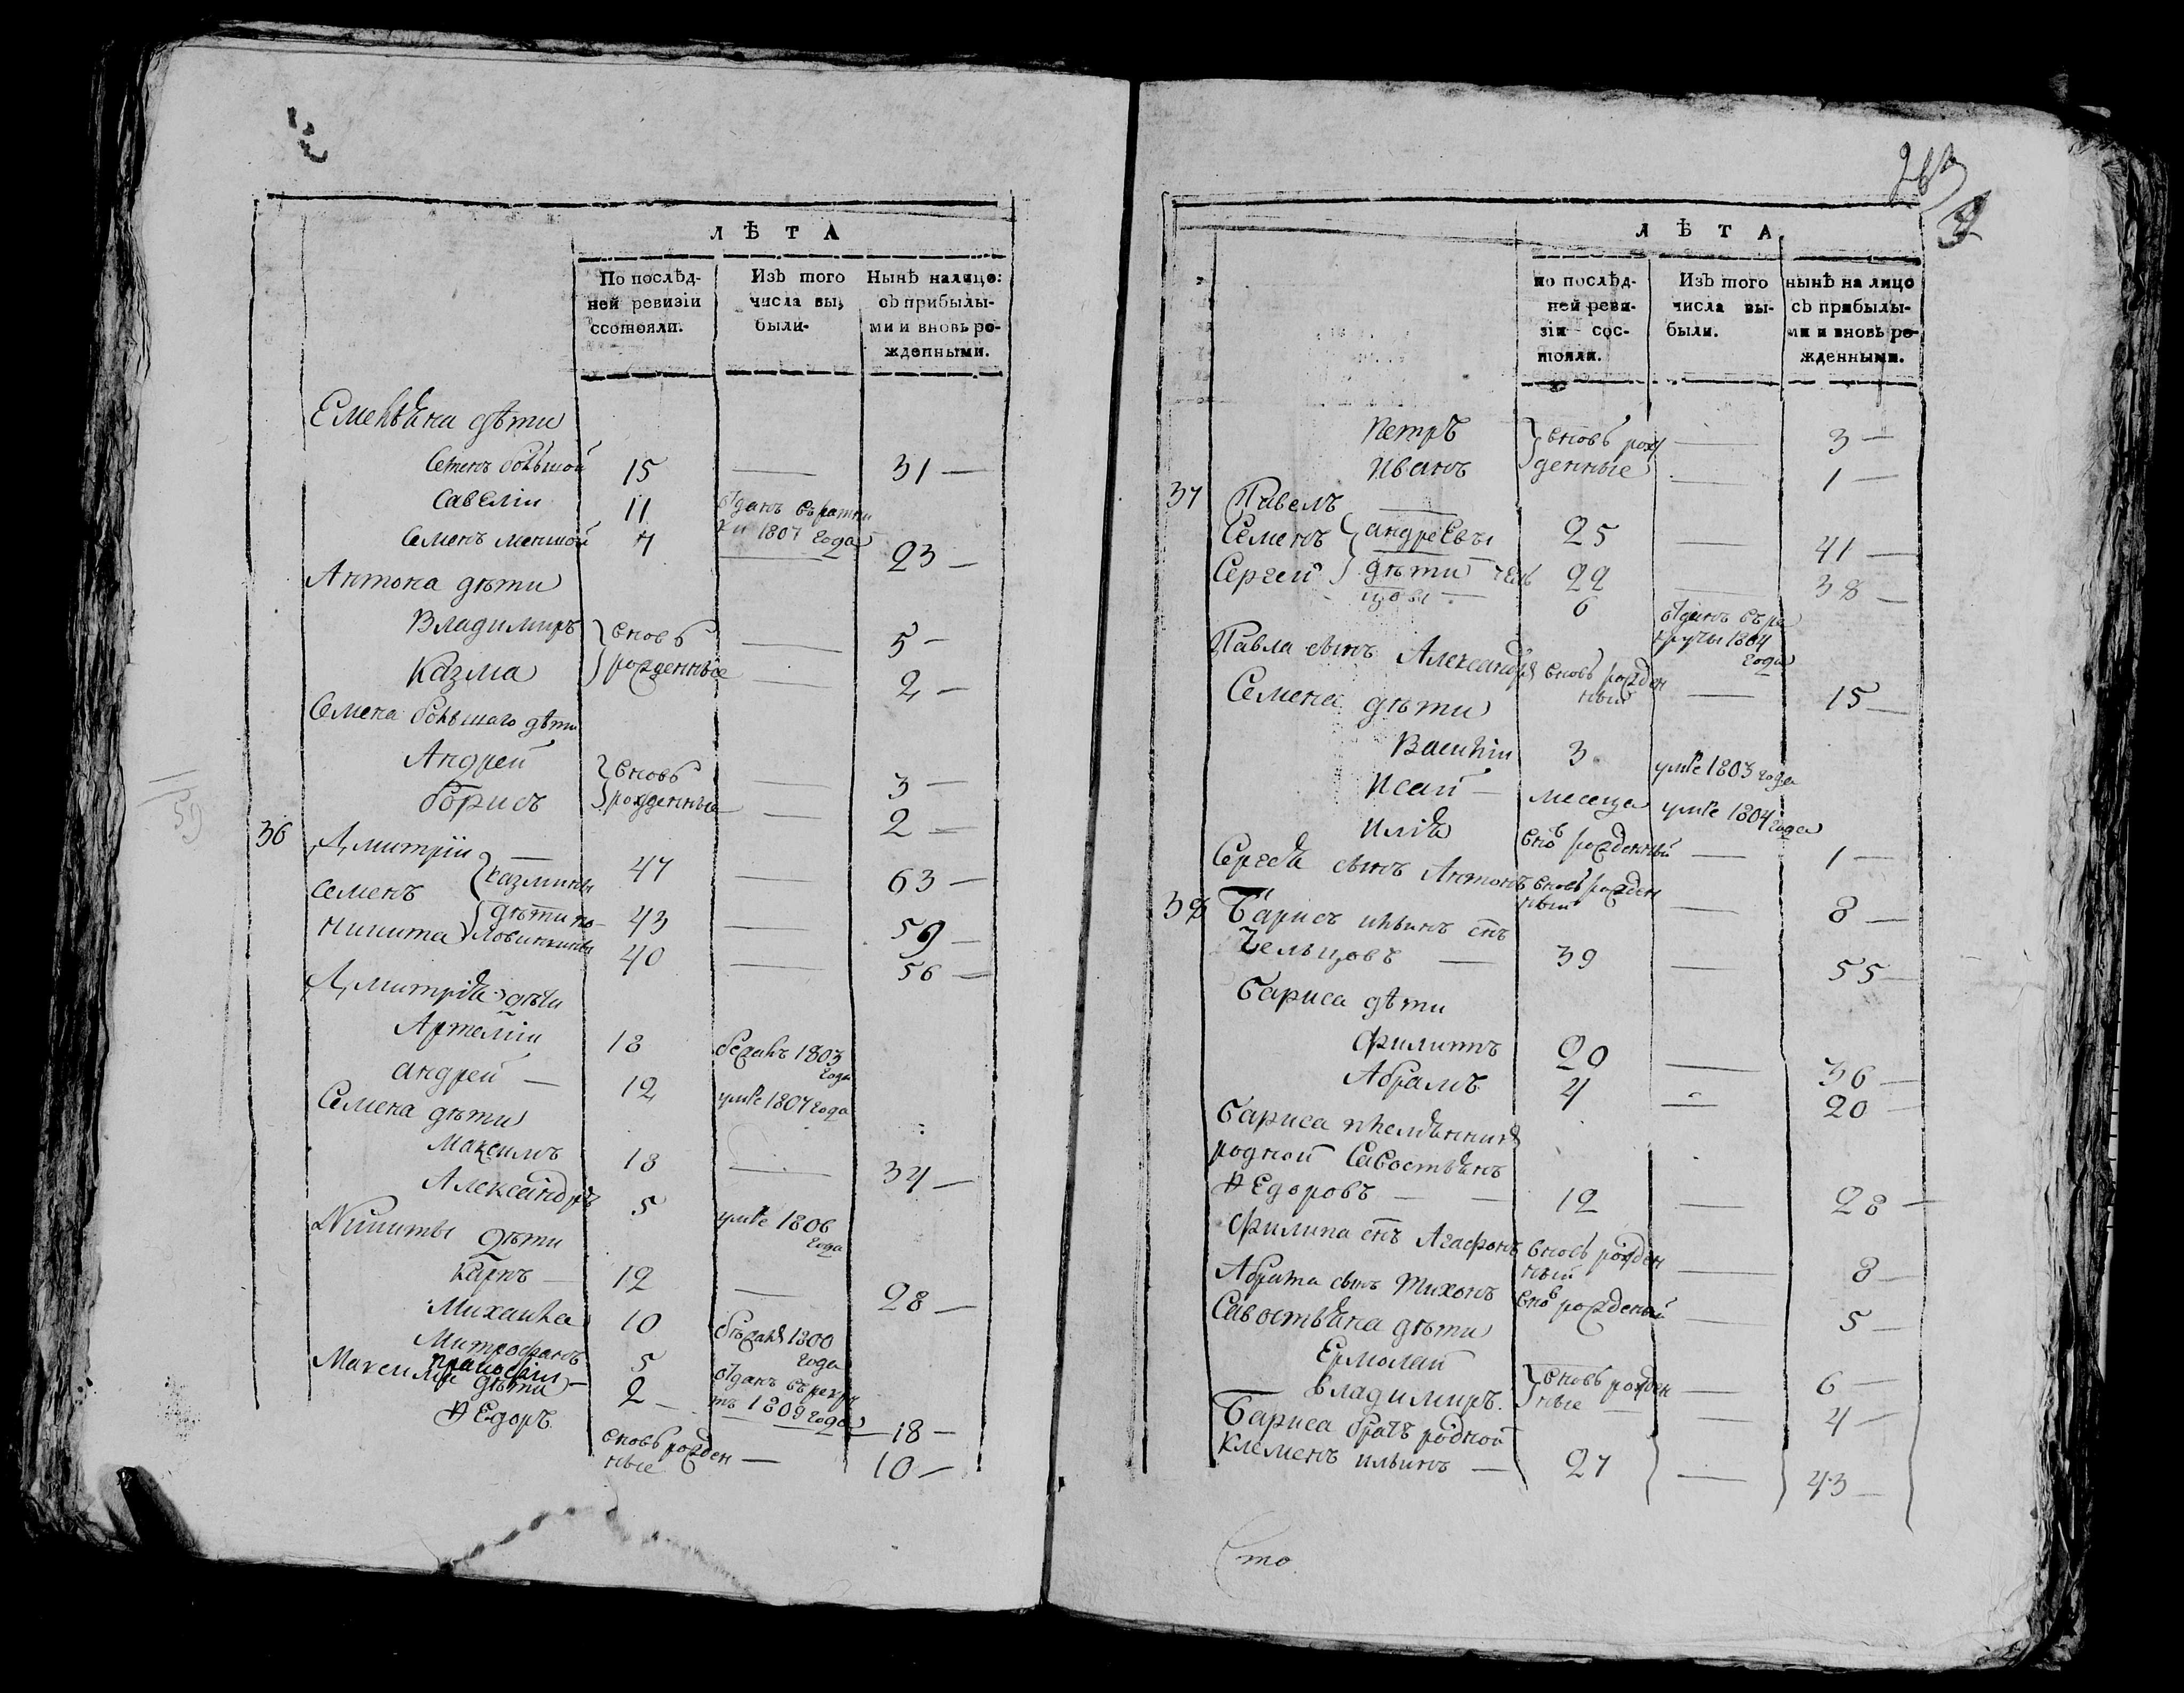 ЛѢТА
По послѣд-
ней ревизіи
ссотояли.
Изъ того
числа вы,
были.
Нынѣ налицо:
съ прибылы-
ми и вновь ро-
жденными.
Емельяна дѣти
Семенъ большой 15 — 31 —
Савелiи 11 отданъ въ ратни
ки 1807 года
Семенъ меншой 7 — 23 —
Антона дѣти
Владимиръ вновь — 5 —
Казма рожденные — 2 —
Семена большаго дѣти
Андрей вновь — 3 —
борисъ рожденные — 2 —
36 Дмитрiи казмины 47 — 63 —
семенъ дѣти 43 — 59 —
никита 40 — 56 —
Дмитрiя дѣти
Артемiи 18 бежалъ 1803
года
андрей — 12 умре 1807 года
Семена дѣти
Максимъ 18 — 34 —
Александръ 5 умре 1806
года
Никиты дѣти
Карпъ — 12 — 28 —
Михаила 10 1800
года
Митрофанъ 5 отданъ въ рекру
ты 1809 года
2 — 18 —
Максима дѣти
Ѳедоръ вновь рожден
ные — 10 —
ЛѢТА
по послѣд-
ней реви-
зіи сос-
тояли.
Изъ того
числа вы-
были.
нынѣ на лицо
съ прибылы-
ми и вновь ро-
жденными.
Петръ вновь рож — 3 —
Иванъ денные — 1 —
37 Павелъ — 25 — 41 —
Семенъ андреевы 22 — 38 —
Сергей дѣти чель 6 отданъ въ ре
цовы круты 1804
года
Павла сынъ Александръ вновь рожден
ный — 15 —
Семена дѣти
Василiи 3 умре 1803 года
Исай — месеца умре 1804 года
Илiя вновь рожденный — 1 —
Сергея сынъ Антонъ вновь рожден
ный — 8 —
38 Барисъ ильинъ снъ
Чельцовъ — 39 — 55 —
Бариса дѣти
Филипъ 20 — 36 —
Абрамъ 4 — 20 —
Бариса племянникъ
родной Савостьянъ
Ѳедоровъ — — 12 — 28 —
Филипа снъ Агафонъ вновь рожден
ный — 8 —
Абрама сынъ Тихонъ вновь рожденый — 5 —
Савостьяна дѣти
Ермолай вновь рожден — 6 —
владимиръ. ные — 4 —
Бариса братъ родной
Клеменъ ильинъ — 27 — 43 —
Сто